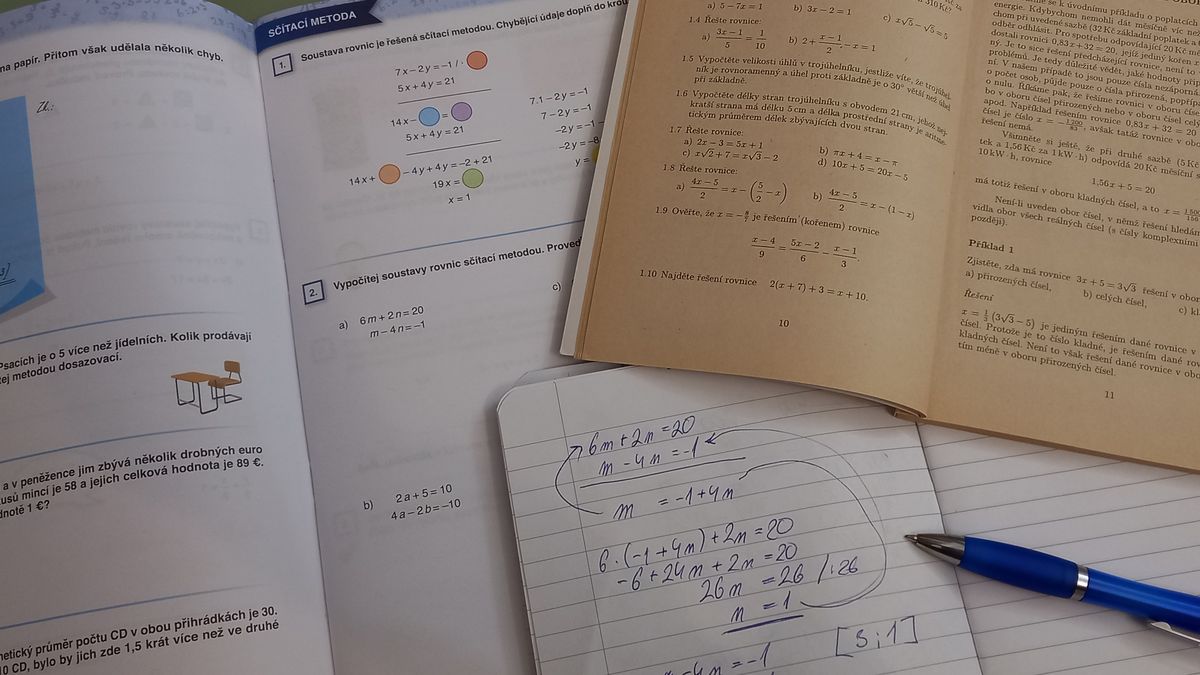 na papír. Přitom však udělala několik chyb.
Zk.:
Psacích je o 5 více než jídelních. Kolik prodávají
metodou dosazovací.
a v peněžence jim zbývá několik drobných euro
mincí je 58 a jejich celková hodnota je 89 €.
1 €?
průměr počtu CD v obou přihrádkách je 30.
CD, bylo by jich zde 1,5 krát více než ve druhé
SČÍTACÍ METODA
1. Soustava rovnic je řešená sčítací metodou. Chybějící údaje doplň do
7x − 2y = −1 / ·
5x + 4y = 21
14x − =
5x + 4y = 21
14x + − 4y + 4y = −2 + 21
19x =
x = 1
7.1 − 2y = −1
7 − 2y = −1
−2y = −1 −
−2y = −8
y =
2. Vypočítej soustavy rovnic sčítací metodou.
a) 6m + 2n = 20
m − 4n = −1
c)
b) 2a + 5 = 10
4a − 2b = −10
a) 5 − 7x = 1 b) 3x − 2 = 1 c) x√5 − √5 = 5
1.4 Řešte rovnice:
a) 3x−1/5 = 1/10 b) 2 + x−1/2 − x = 1
1.5 Vypočtěte velikosti úhlů v trojúhelníku, jestliže víte, že
ník je rovnoramenný a úhel proti základně je o 30° větší než úhel
při základně.
1.6 Vypočtěte délky stran trojúhelníku s obvodem 21 cm, jehož
kratší strana má délku 5 cm a délka prostřední strany je
tickým průměrem délek zbývajících dvou stran.
1.7 Řešte rovnice:
a) 2x − 3 = 5x + 1 b) πx + 4 = x − π
c) x√2 + 7 = x√3 − 2 d) 10x + 5 = 20x − 5
1.8 Řešte rovnice:
a) 4x−5/2 = x − (5/2 − x) b) 4x−5/2 = x − (1 − x)
1.9 Ověřte, že x = je řešením (kořenem) rovnice
x−4/9 = 5x−2/6 − x−1/3.
1.10 Najděte řešení rovnice 2(x + 7) + 3 = x + 10.
10
se k úvodnímu příkladu o poplatcích
energie. Kdybychom nemohli dát měsíčně víc než
chom při uvedené sazbě (32 Kč základní poplatek a
odběr odhlásit. Pro spotřebu odpovídající 20 Kč
dostali rovnici 0,83x + 32 = 20, jejíž jediný kořen
ný. Je to sice řešení předcházející rovnice, není to
problémů. Je tedy důležité vědět, jaké hodnoty
ní. V našem případě to jsou pouze čísla nezáporná
o počet osob, půjde pouze o čísla přirozená,
o nulu. Říkáme pak, že řešíme rovnici v oboru
bo v oboru čísel přirozených nebo v oboru čísel
apod. Například řešením rovnice 0,83x + 32 = 20
čísel je číslo x = −1200/83, avšak tatáž rovnice v
řešení nemá.
Všimněte si ještě, že při druhé sazbě (5 Kč
tek a 1,56 Kč za 1 kW · h) odpovídá 20 Kč měsíční
10 kW · h, rovnice
1,56x + 5 = 20
má totiž řešení v oboru kladných čísel, a to x =
Není-li uveden obor čísel, v němž řešení
vidla obor všech reálných čísel (s čísly komplexními
později).
Příklad 1
Zjistěte, zda má rovnice 3x + 5 = 3√3 řešení v
a) přirozených čísel, b) celých čísel, c)
Řešení
x = 1/3 (3√3 − 5) je jediným řešením dané rovnice v
čísel. Protože je to číslo kladné, je řešením dané
kladných čísel. Není to však řešení dané rovnice v
tím méně v oboru přirozených čísel.
11
6m + 2n = 20
m − 4n = −1
m = −1 + 4n
6 · (−1 + 4n) + 2n = 20
−6 + 24n + 2n = 20
26n = 26 / :26
n = 1
[3 ; 1]
− 4n = −1